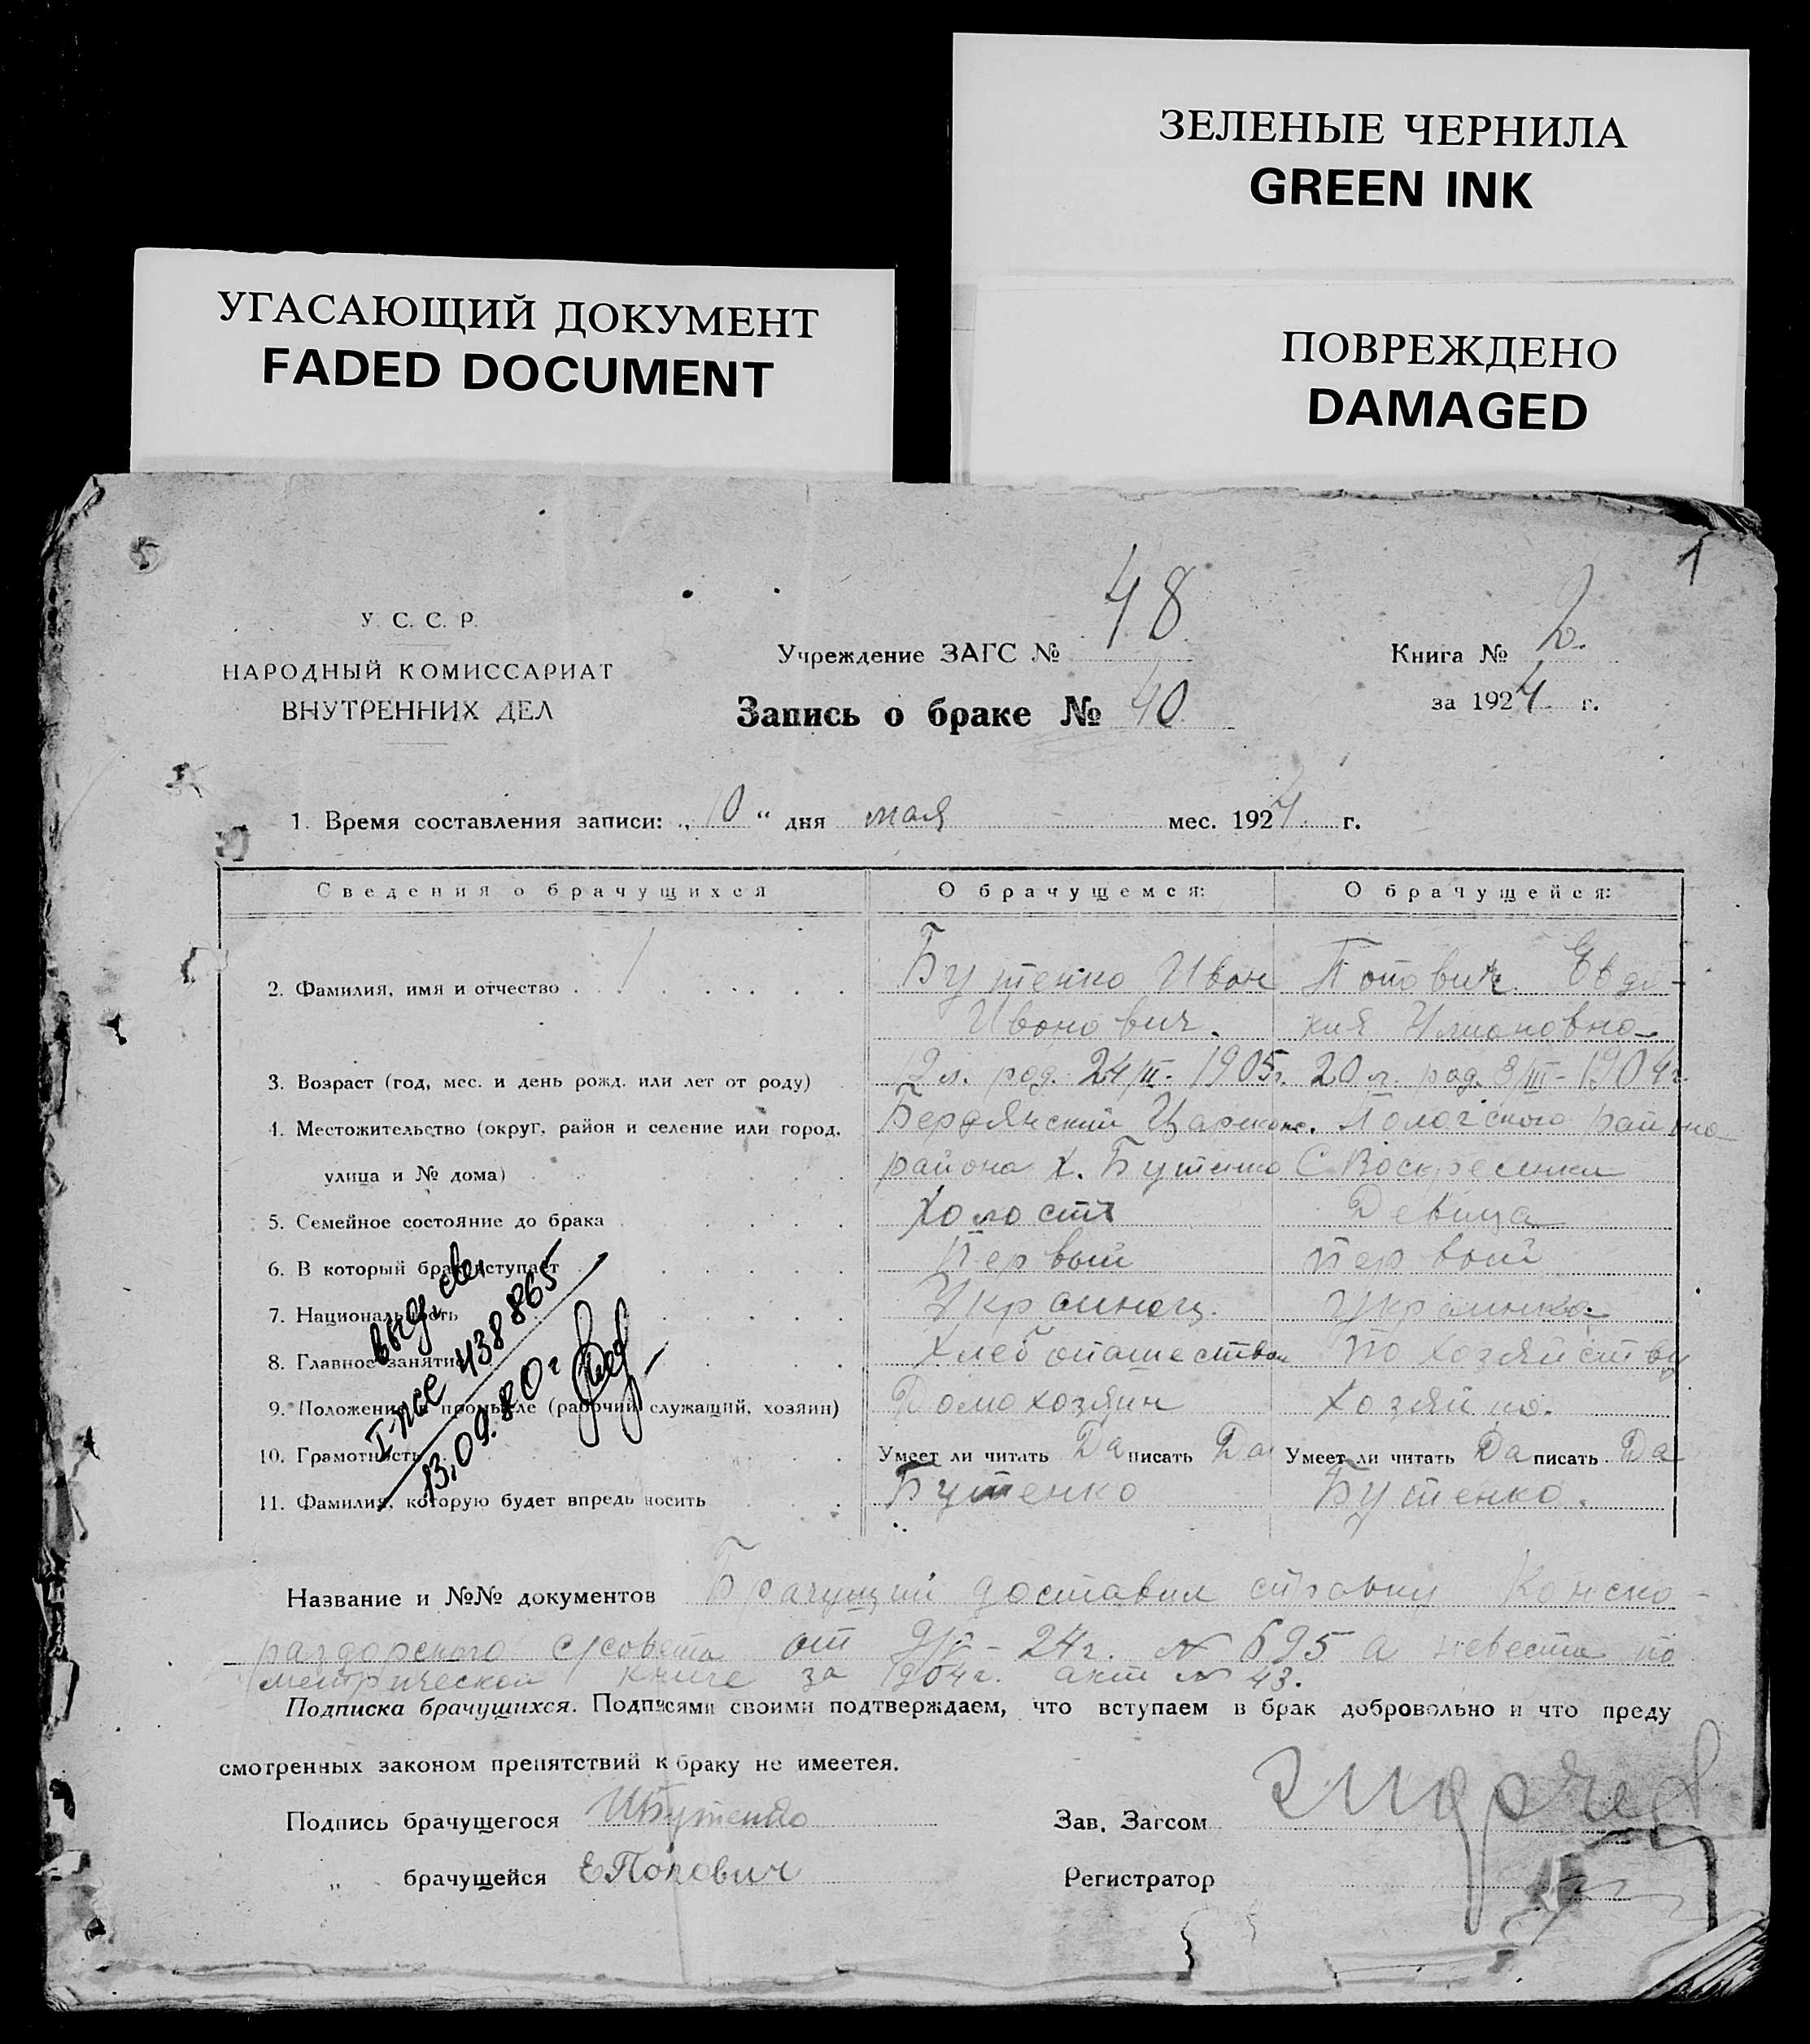 ЗЕЛЕНЫЕ ЧЕРНИЛА
GREEN INK
УГАСАЮЩИЙ ДОКУМЕНТ
FADED DOCUMENT
ПОВРЕЖДЕНО
DAMAGED
1
У. С. С. Р.
НАРОДНЫЙ КОМИССАРИАТ
ВНУТРЕННИХ ДЕЛ
Учреждение ЗАГС № 48
Запись о браке № 40
Книга № 2
за 1924 г.
1. Время составления записи: „10“ дня мая мес. 1924 г.
Сведения о брачущихся О брачущемся: О брачущейся:
2. Фамилия, имя и отчество Бутенко Иван Попович Евдо-
Иванович. кия
3. Возраст (год, мес. и день рожд. или лет от роду) род. 24/II - 1905г. 20 л. род. 8/III - 1904г
4. Местожительство (округ, район и селение или город, Бердянский Цареконс. Пологского района
улица и № дома) района х. Бутенко С Воскресенка
5. Семейное состояние до брака Холост Девица
6. В который брак вступает Первый первый
7. Национальность Украинец. Украинка
8. Главное занятие Хлебопашество По хозяйству
9. Положение в промысле (рабочий, служащий, хозяин) Домохозяин Хозяйка.
10. Грамотность Умеет ли читать Да писать Да Умеет ли читать Да писать Да
11. Фамилия, которую будет впредь носить Бутенко Бутенко.
выд. св.
438865
13.09.80г
Название и №№ документов Брачущий доставил справку Конско-
раздорского с/совета от 24г. № 695 а невеста по
метрической книге за 1904г. акт № 43.
Подписка брачущихся. Подписями своими подтверждаем, что вступаем в брак добровольно и что преду
смотренных законом препятствий к браку не имеетея.
Подпись брачущегося ИБутенко Зав. Загсом
„ брачущейся ЕПопович Регистратор